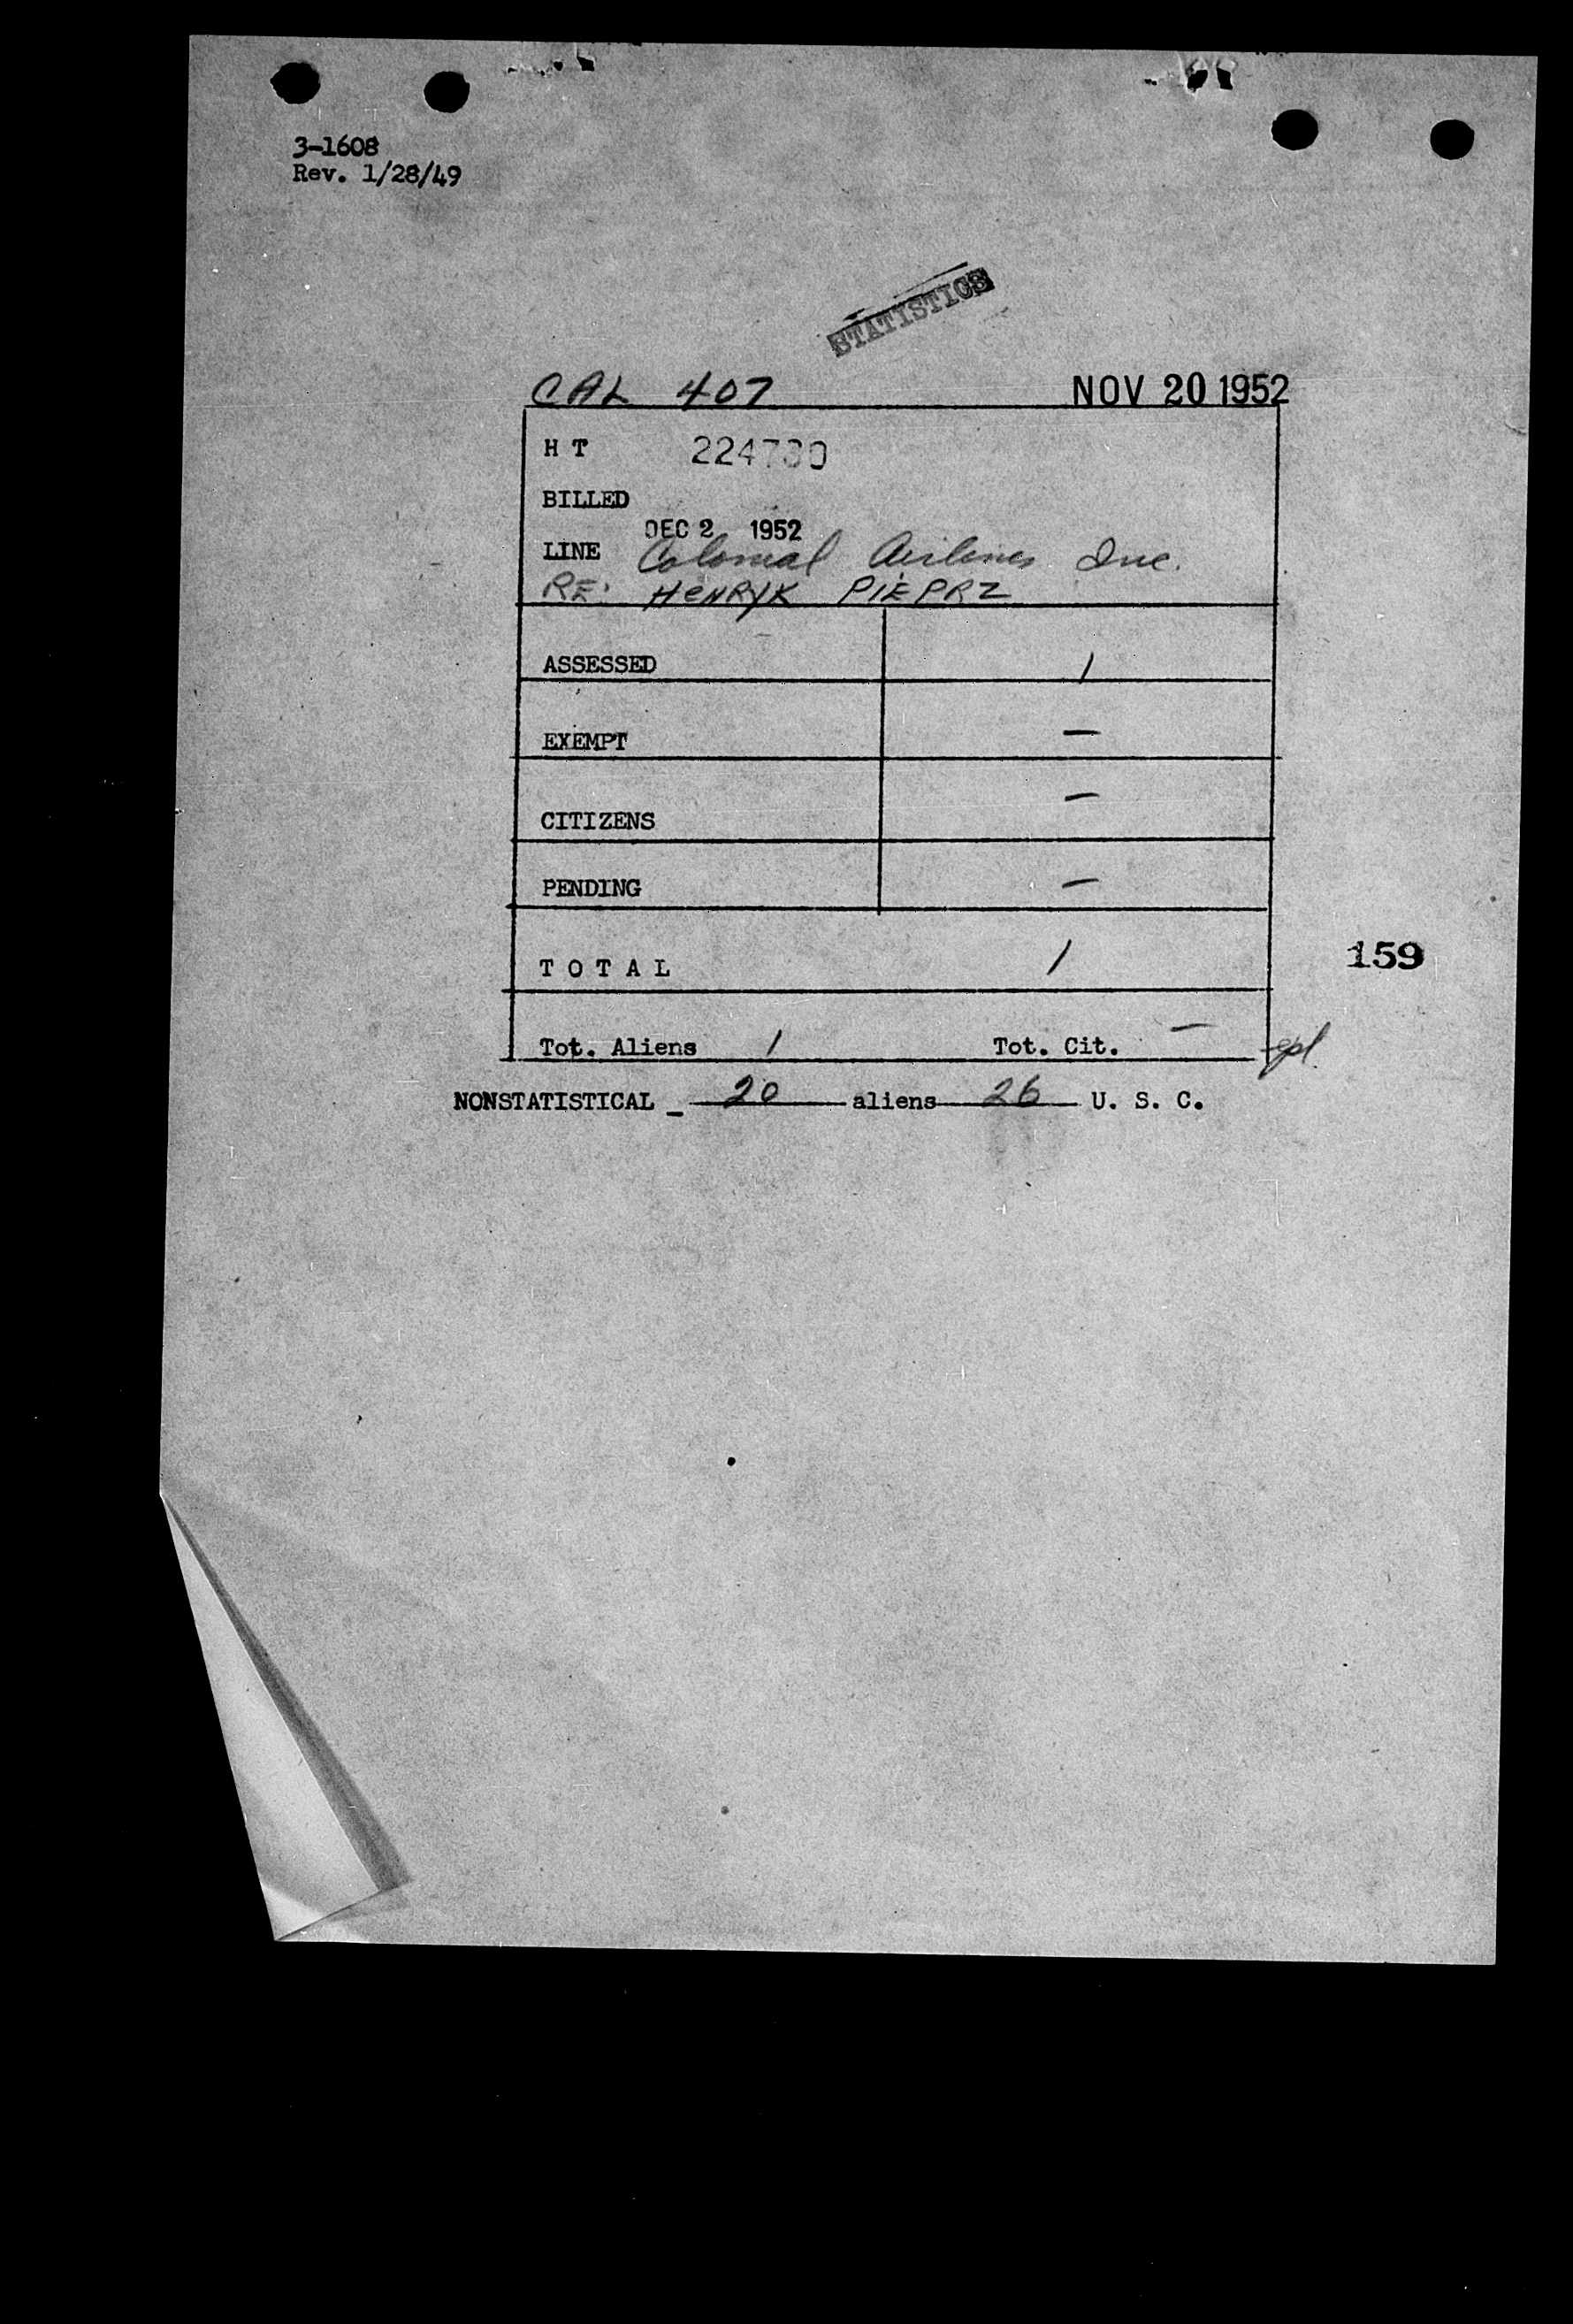 3-1608
Rev. 1/28/49
STATISTICS
CAL 407 NOV 20 1952
H T 224730
BILLED
DEC 2 1952
LINE Colonial Airlines Inc.
RE: HENRYK PIEPRZ
ASSESSED 1
EXEMPT —
CITIZENS —
PENDING —
TOTAL 1
159
Tot. Aliens 1 Tot. Cit. —
NONSTATISTICAL - 20 aliens 26 U. S. C.